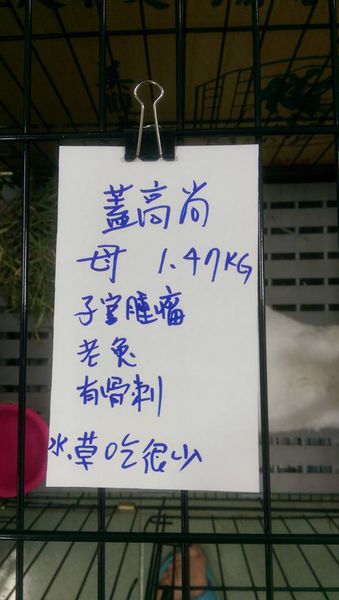 蓋高尚
母 1.47KG
子宮腫瘤
老兔
有骨刺
水.草吃很少